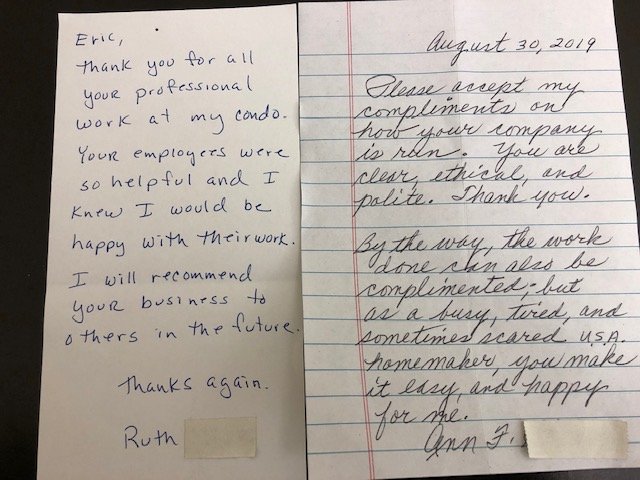 Eric,
Thank you for all
your professional
work at my condo.
Your employees were
so helpful and I
knew I would be
happy with their work.
I will recommend
your business to
others in the future.
Thanks again.
Ruth
August 30, 2019
Please accept my
compliments on
how your company
is run. You are
clear, ethical, and
polite. Thank you.
By the way, the work
done can also be
complimented; but
as a busy, tired, and
sometimes scared U.S.A.
homemaker, you make
it easy, and happy
for me.
Ann F.